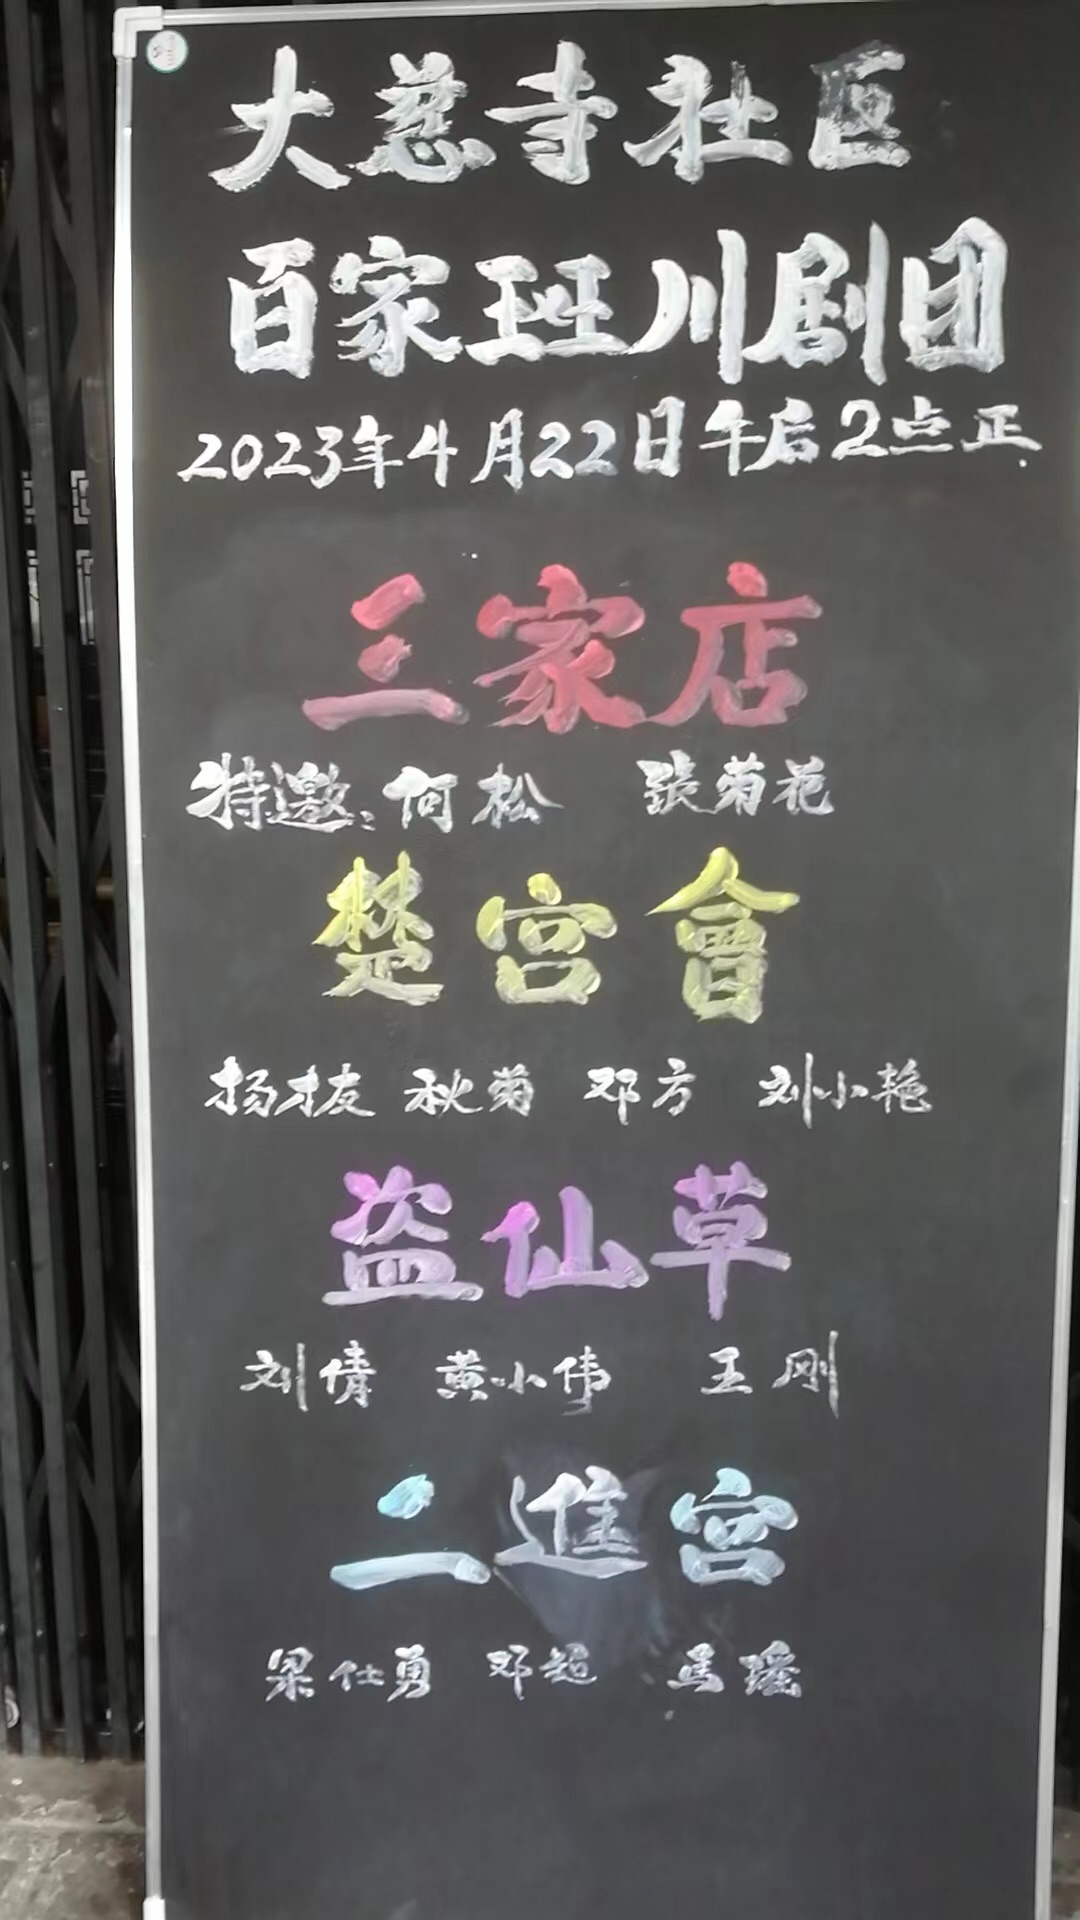 大慈寺社区
百家班川剧团
2023年4月22日午后2点正
三家店
特邀:何松 张菊花
楚宫會
扬才友 秋菊 邓方 刘小艳
盗仙草
刘倩 黄小伟 王刚
二進宫
梁仕勇 邓超 马瑶